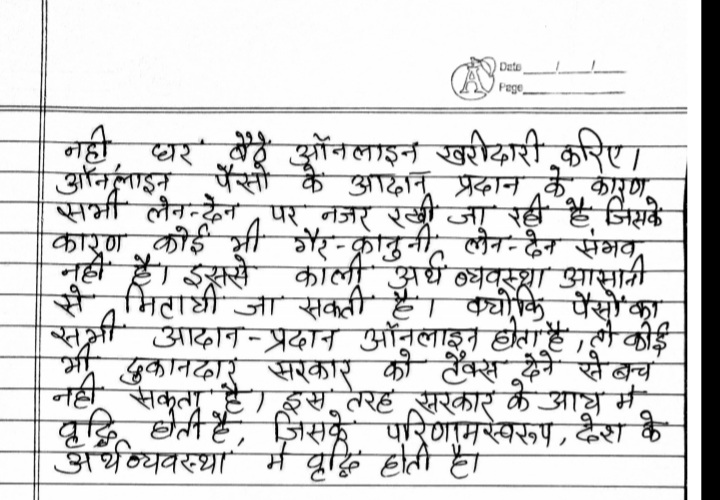 Date / /
Page
नहीं घर बैठे ऑनलाइन खरीदारी करिए।
ऑनलाइन पैसों के आदान प्रदान के कारण
सभी लेन-देन पर नजर रखी जा रही है जिसके
कारण कोई भी गैर-कानुनी लेन-देन संभव
नहीं है। इससे काली अर्थ व्यवस्था आसानी
से मिटायी जा सकती है। क्योकि पैसों का
सभी आदान-प्रदान ऑनलाइन होता है, तो कोई
भी दुकानदार सरकार को टैक्स देने से बच
नहीं सकता है। इस तरह सरकार के आय में
वृद्धि होती है, जिसके परिणामस्वरूप, देश के
अर्थव्यवस्था में वृद्धि होती है।